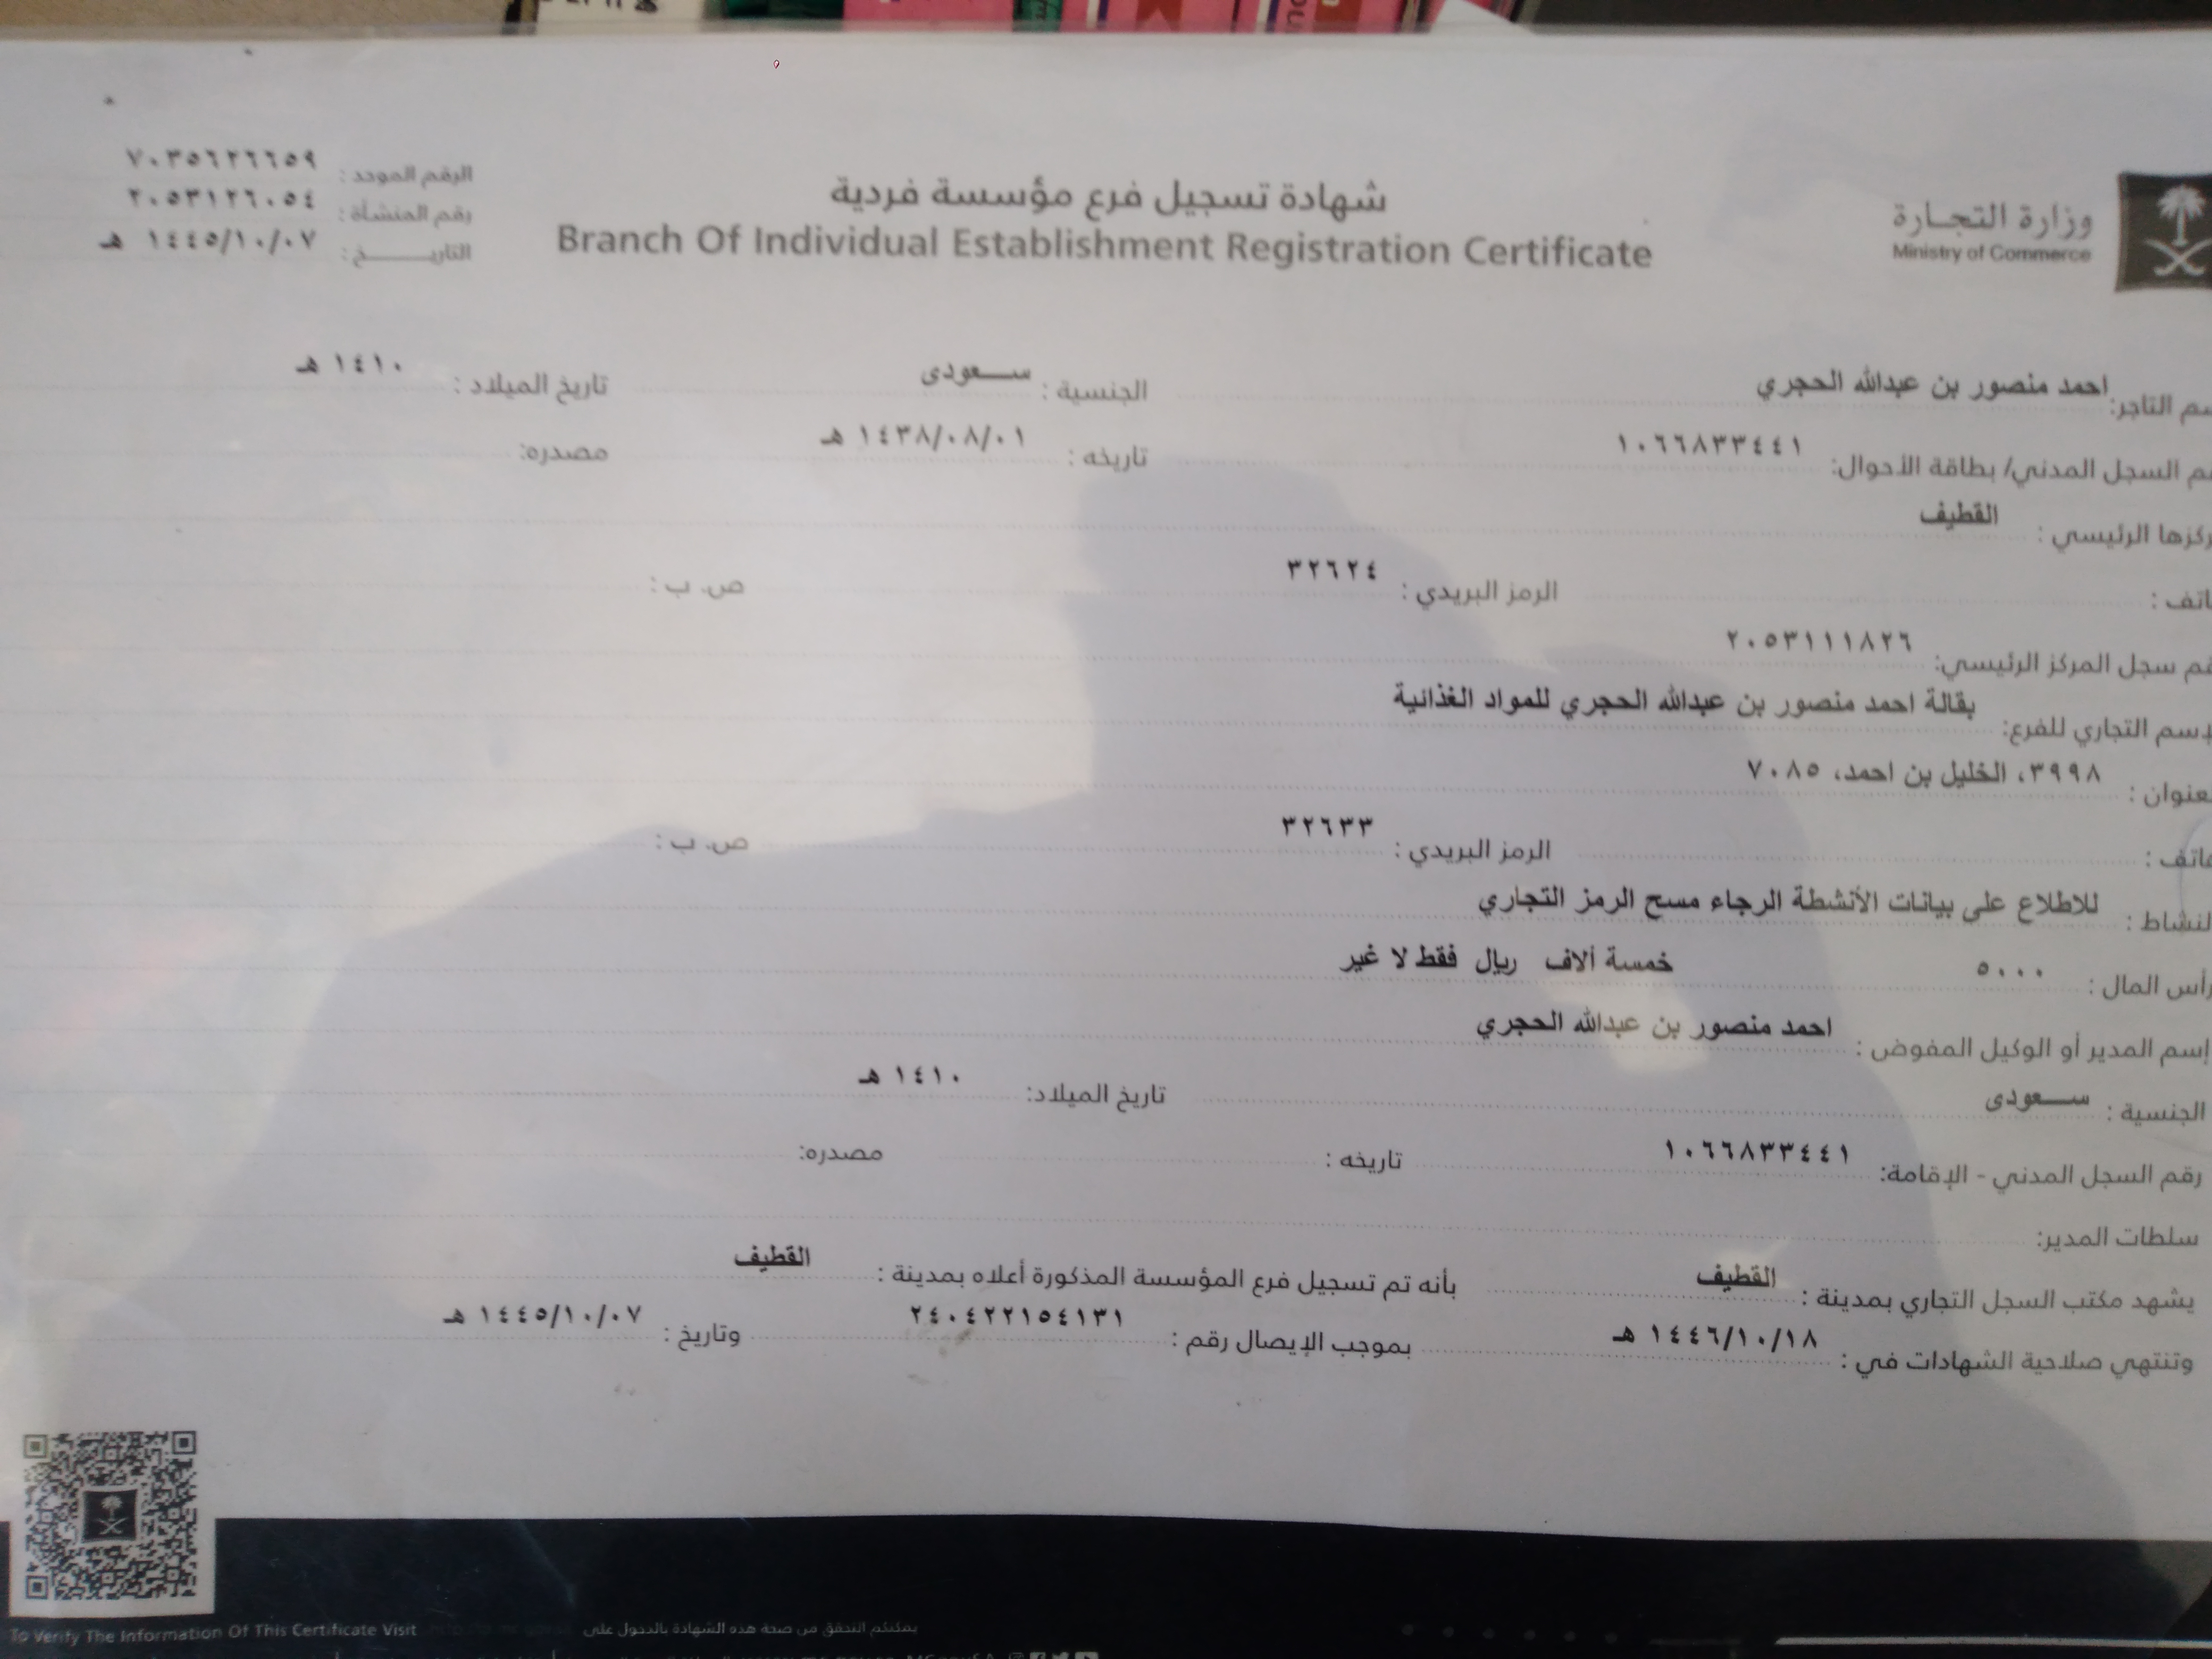 وزارة التجارة
Ministry of Commerce
شهادة تسجيل فرع مؤسسة فردية
Branch Of Individual Establishment Registration Certificate
الرقم الموحد : ٧٠٣٥٦٢٦٦٥٩
رقم المنشأة : ٢٠٥٣١٢٦٠٥٤
التاريـــــخ : ١٤٤٥/١٠/٠٧ هـ
سم التاجر: احمد منصور بن عبدالله الحجري الجنسية : ســـعودى تاريخ الميلاد : ١٤١٠ هـ
قم السجل المدني/ بطاقة الأحوال: ١٠٦٦٨٣٣٤٤١ تاريخه : ١٤٣٨/٠٨/٠١ هـ مصدره:
ركزها الرئيسي : القطيف
اتف : الرمز البريدي : ٣٢٦٢٤ ص. ب :
قم سجل المركز الرئيسي: ٢٠٥٣١١١٨٢٦
لإسم التجاري للفرع: بقالة احمد منصور بن عبدالله الحجري للمواد الغذائية
لعنوان : ٣٩٩٨، الخليل بن احمد، ٧٠٨٥
هاتف : الرمز البريدي : ٣٢٦٣٣ ص. ب :
لنشاط : للاطلاع على بيانات الأنشطة الرجاء مسح الرمز التجاري
رأس المال : ٥٠٠٠ خمسة ألاف ريال فقط لا غير
إسم المدير أو الوكيل المفوض : احمد منصور بن عبدالله الحجري
الجنسية : ســـعودى تاريخ الميلاد: ١٤١٠ هـ
رقم السجل المدني - الإقامة: ١٠٦٦٨٣٣٤٤١ تاريخه : مصدره:
سلطات المدير:
يشهد مكتب السجل التجاري بمدينة : القطيف بأنه تم تسجيل فرع المؤسسة المذكورة أعلاه بمدينة : القطيف
وتنتهي صلاحية الشهادات في : ١٤٤٦/١٠/١٨ هـ بموجب الإيصال رقم : ٢٤٠٤٢٢١٥٤١٣١ وتاريخ : ١٤٤٥/١٠/٠٧ هـ
To Verify The Information Of This Certificate Visit يمكنكم التحقق من صحة هذه الشهادة بالدخول على